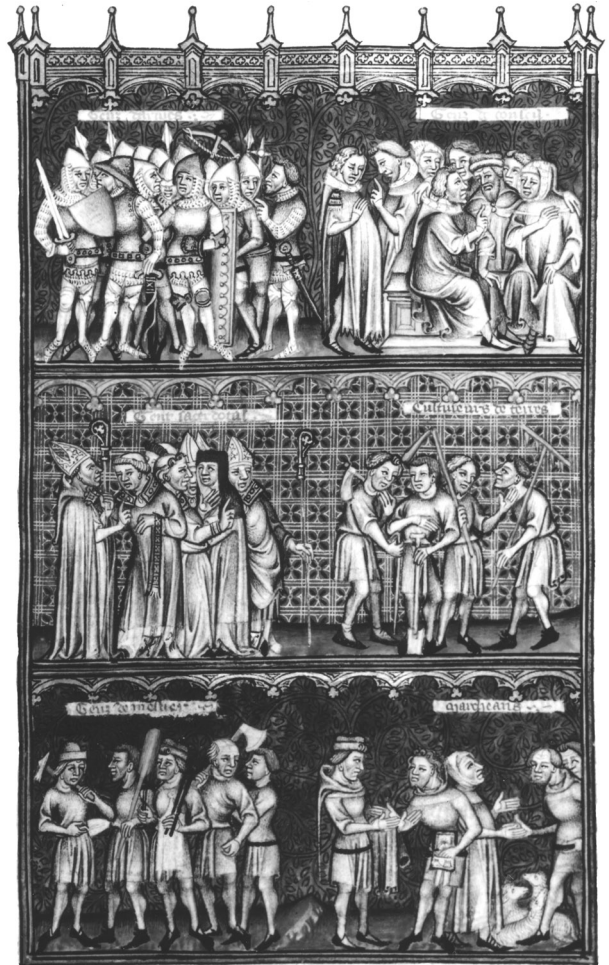 Gent darmes
Gent de conseil
Gent sacerdotal
Cultiveurs de terres
Genz de mestier
marcheans